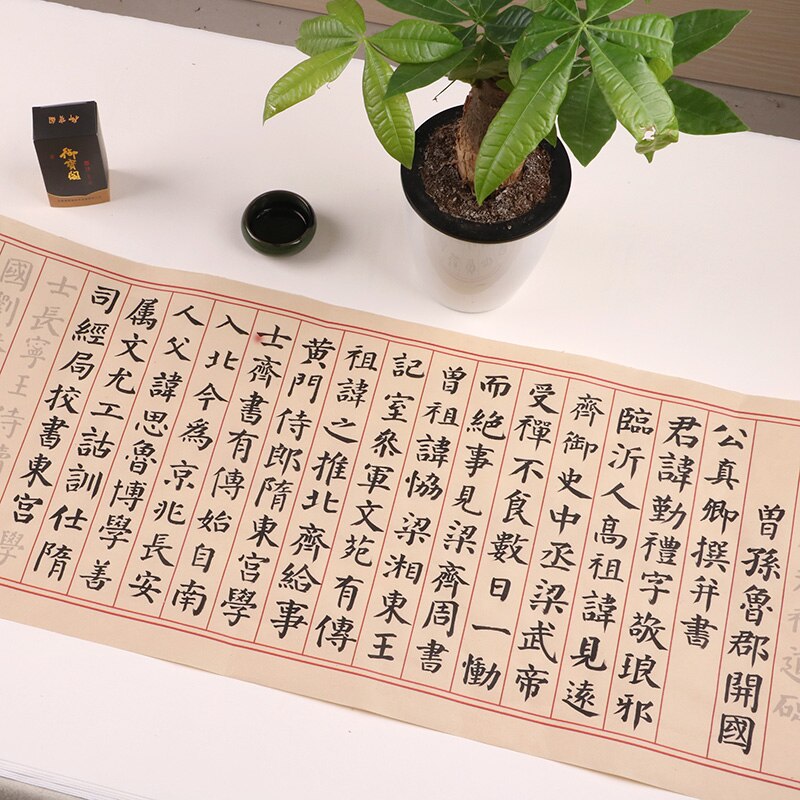 曾孫魯郡開國
公真卿撰并書
君諱勤禮字敬琅邪
臨沂人高祖諱見遠
齊御史中丞梁武帝
受禪不食數日一慟
而絶事見梁齊周書
曾祖諱恊梁湘東王
記室叅軍文苑有傳
祖諱之推北齊給事
黄門侍郎隋東宮學
士齊書有傳始自南
入北今為京兆長安
人父諱思魯博學善
属文尤工詁訓仕隋
司經局挍書東宮
士長寧王侍讀
國劉
學
御寶閣
御寶閣